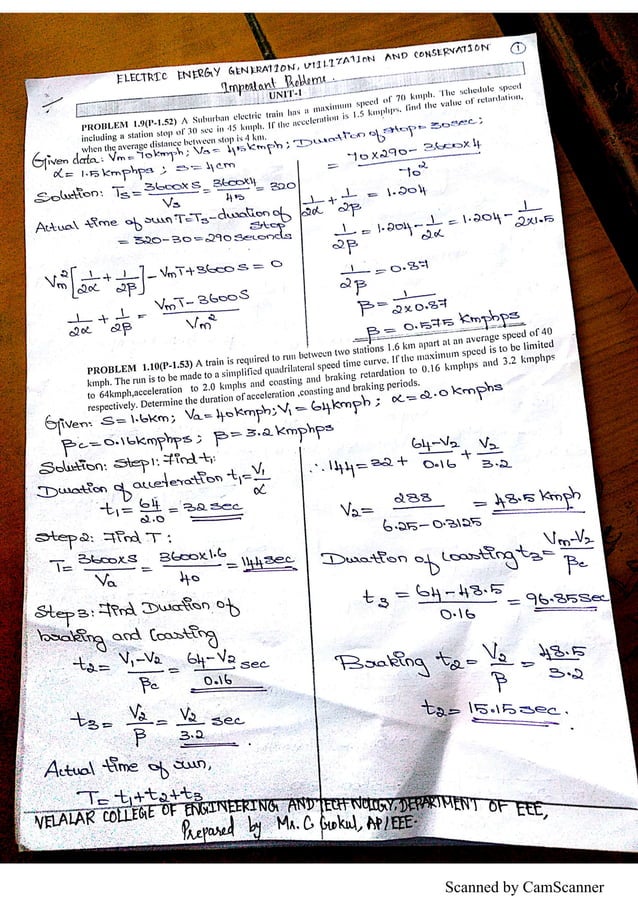 ELECTRIC ENERGY GENERATION, UTILIZATION AND CONSERVATION
1
Important Problems.
UNIT-I
PROBLEM 1.9(P-1.52) A Suburban electric train has a maximum speed of 70 kmph. The schedule speed
including a station stop of 30 sec in 45 kmph. If the acceleration is 1.5 kmphps, find the value of retardation,
when the average distance between stop is 4 km.
Given data: Vm = 70kmph; Vs = 45kmph; Duration of stop = 30sec;
α = 1.5kmphps ; S = 4cm
Solution: Ts = 3600×S/Vs = 3600×4/45 = 320
Actual time of run T = Ts - duration of stop
= 320-30 = 290 seconds
Vm² [1/2α + 1/2β] - VmT + 3600S = 0
1/2α + 1/2β = VmT - 3600S/Vm²
= 70×290 - 3600×4/70²
1/2α + 1/2β = 1.204
1/2β = 1.204 - 1/2α = 1.204 - 1/2×1.5
1/2β = 0.87
β = 1/2×0.87
β = 0.575 kmphps
PROBLEM 1.10(P-1.53) A train is required to run between two stations 1.6 km apart at an average speed of 40
kmph. The run is to be made to a simplified quadrilateral speed time curve. If the maximum speed is to be limited
to 64kmph,acceleration to 2.0 kmphs and coasting and braking retardation to 0.16 kmphps and 3.2 kmphps
respectively. Determine the duration of acceleration ,coasting and braking periods.
Given: S = 1.6km; Va = 40kmph; V1 = 64kmph ; α = 2.0kmphs
βc = 0.16kmphps ; β = 3.2kmphps
Solution: Step1: Find t1:
Duration of acceleration t1 = V1/α
t1 = 64/2.0 = 32 sec
Step2: Find T :
T = 3600×S/Va = 3600×1.6/40 = 144sec
Step3: Find Duration of
braking and Coasting
t2 = V1-V2/βc = 64-V2/0.16 sec
t3 = V2/β = V2/3.2 sec
Actual time of run,
T = t1+t2+t3
∴ 144 = 32 + 64-V2/0.16 + V2/3.2
V2 = 288/6.25-0.3125 = 48.5 kmph
Duration of Coasting t3 = Vm-V2/βc
t3 = 64-48.5/0.16 = 96.85sec
Braking t2 = V2/β = 48.5/3.2
t2 = 15.15sec.
VELALAR COLLEGE OF ENGINEERING AND TECHNOLOGY, DEPARTMENT OF EEE,
Prepared by Mr. C Gokul, AP/EEE.
Scanned by CamScanner